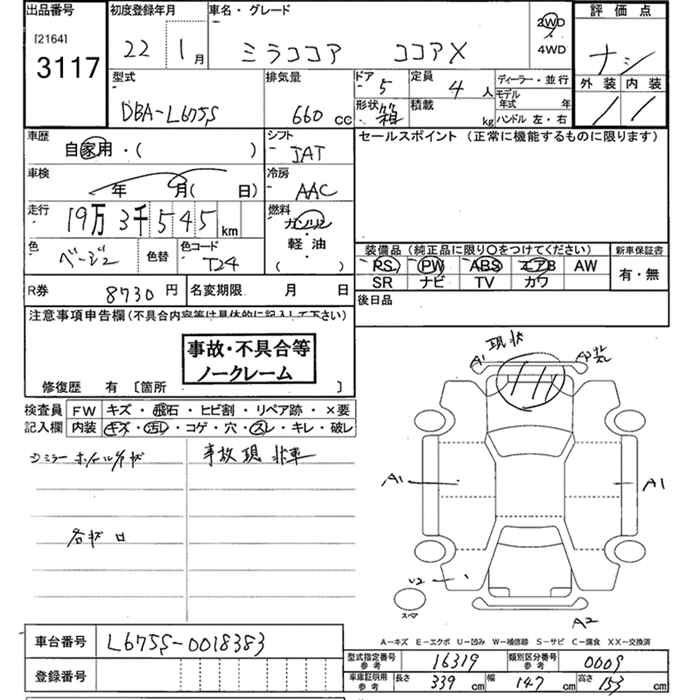 出品番号 初度登録年月 車名・グレード 評価点
[2164] 3117 22 1月 ミラココア ココアX 2WD 4WD ナシ
型式 排気量 ドア 5 定員 4人 ディーラー・並行 外装 内装
DBA-L675S 660cc 形状 箱 積載 kg モデル年式 年 ハンドル 左・右
車歴 自家用・( ) シフト IAT セールスポイント (正常に機能するものに限ります)
車検 年 月( 日) 冷房 AAC
走行 19万3千545km 燃料 ガソリン・軽油 ( )
色 ベージュ 色替 色コード T24
装備品(純正品に限り○をつけてください) 新車保証書
PS PW ABS エアB AW 有・無
SR ナビ TV カワ
R券 8730円 名変期限 月 日 後日品
注意事項申告欄(不具合内容等は具体的に記入して下さい)
事故・不具合等
ノークレーム
修復歴 有 [箇所 ]
検査員 FW キズ・飛石・ヒビ割・リペア跡・×要
記入欄 内装 キズ・汚レ・コゲ・穴・スレ・キレ・破レ
事故現
現状
A1
A1 A1
U2
スペア
A2
A-キズ E-エクボ U-凹み W-補修跡 S-サビ C-腐食 XX-交換済
車台番号 L675S-0018383
登録番号
型式指定番号 参考 16319 類別区分番号 参考 0009
車庫証明用 参考 長さ 339cm 幅 147cm 高さ 153cm